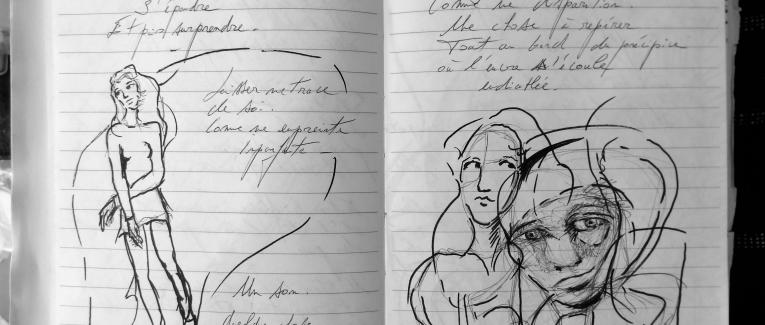 S'épandre
Et puis surprendre.
Laisser une trace
de soi.
Comme une empreinte
Un son.
Comme une disparition.
Une chose à repérer
Tout au bord du précipice
où l'encre s'écoule